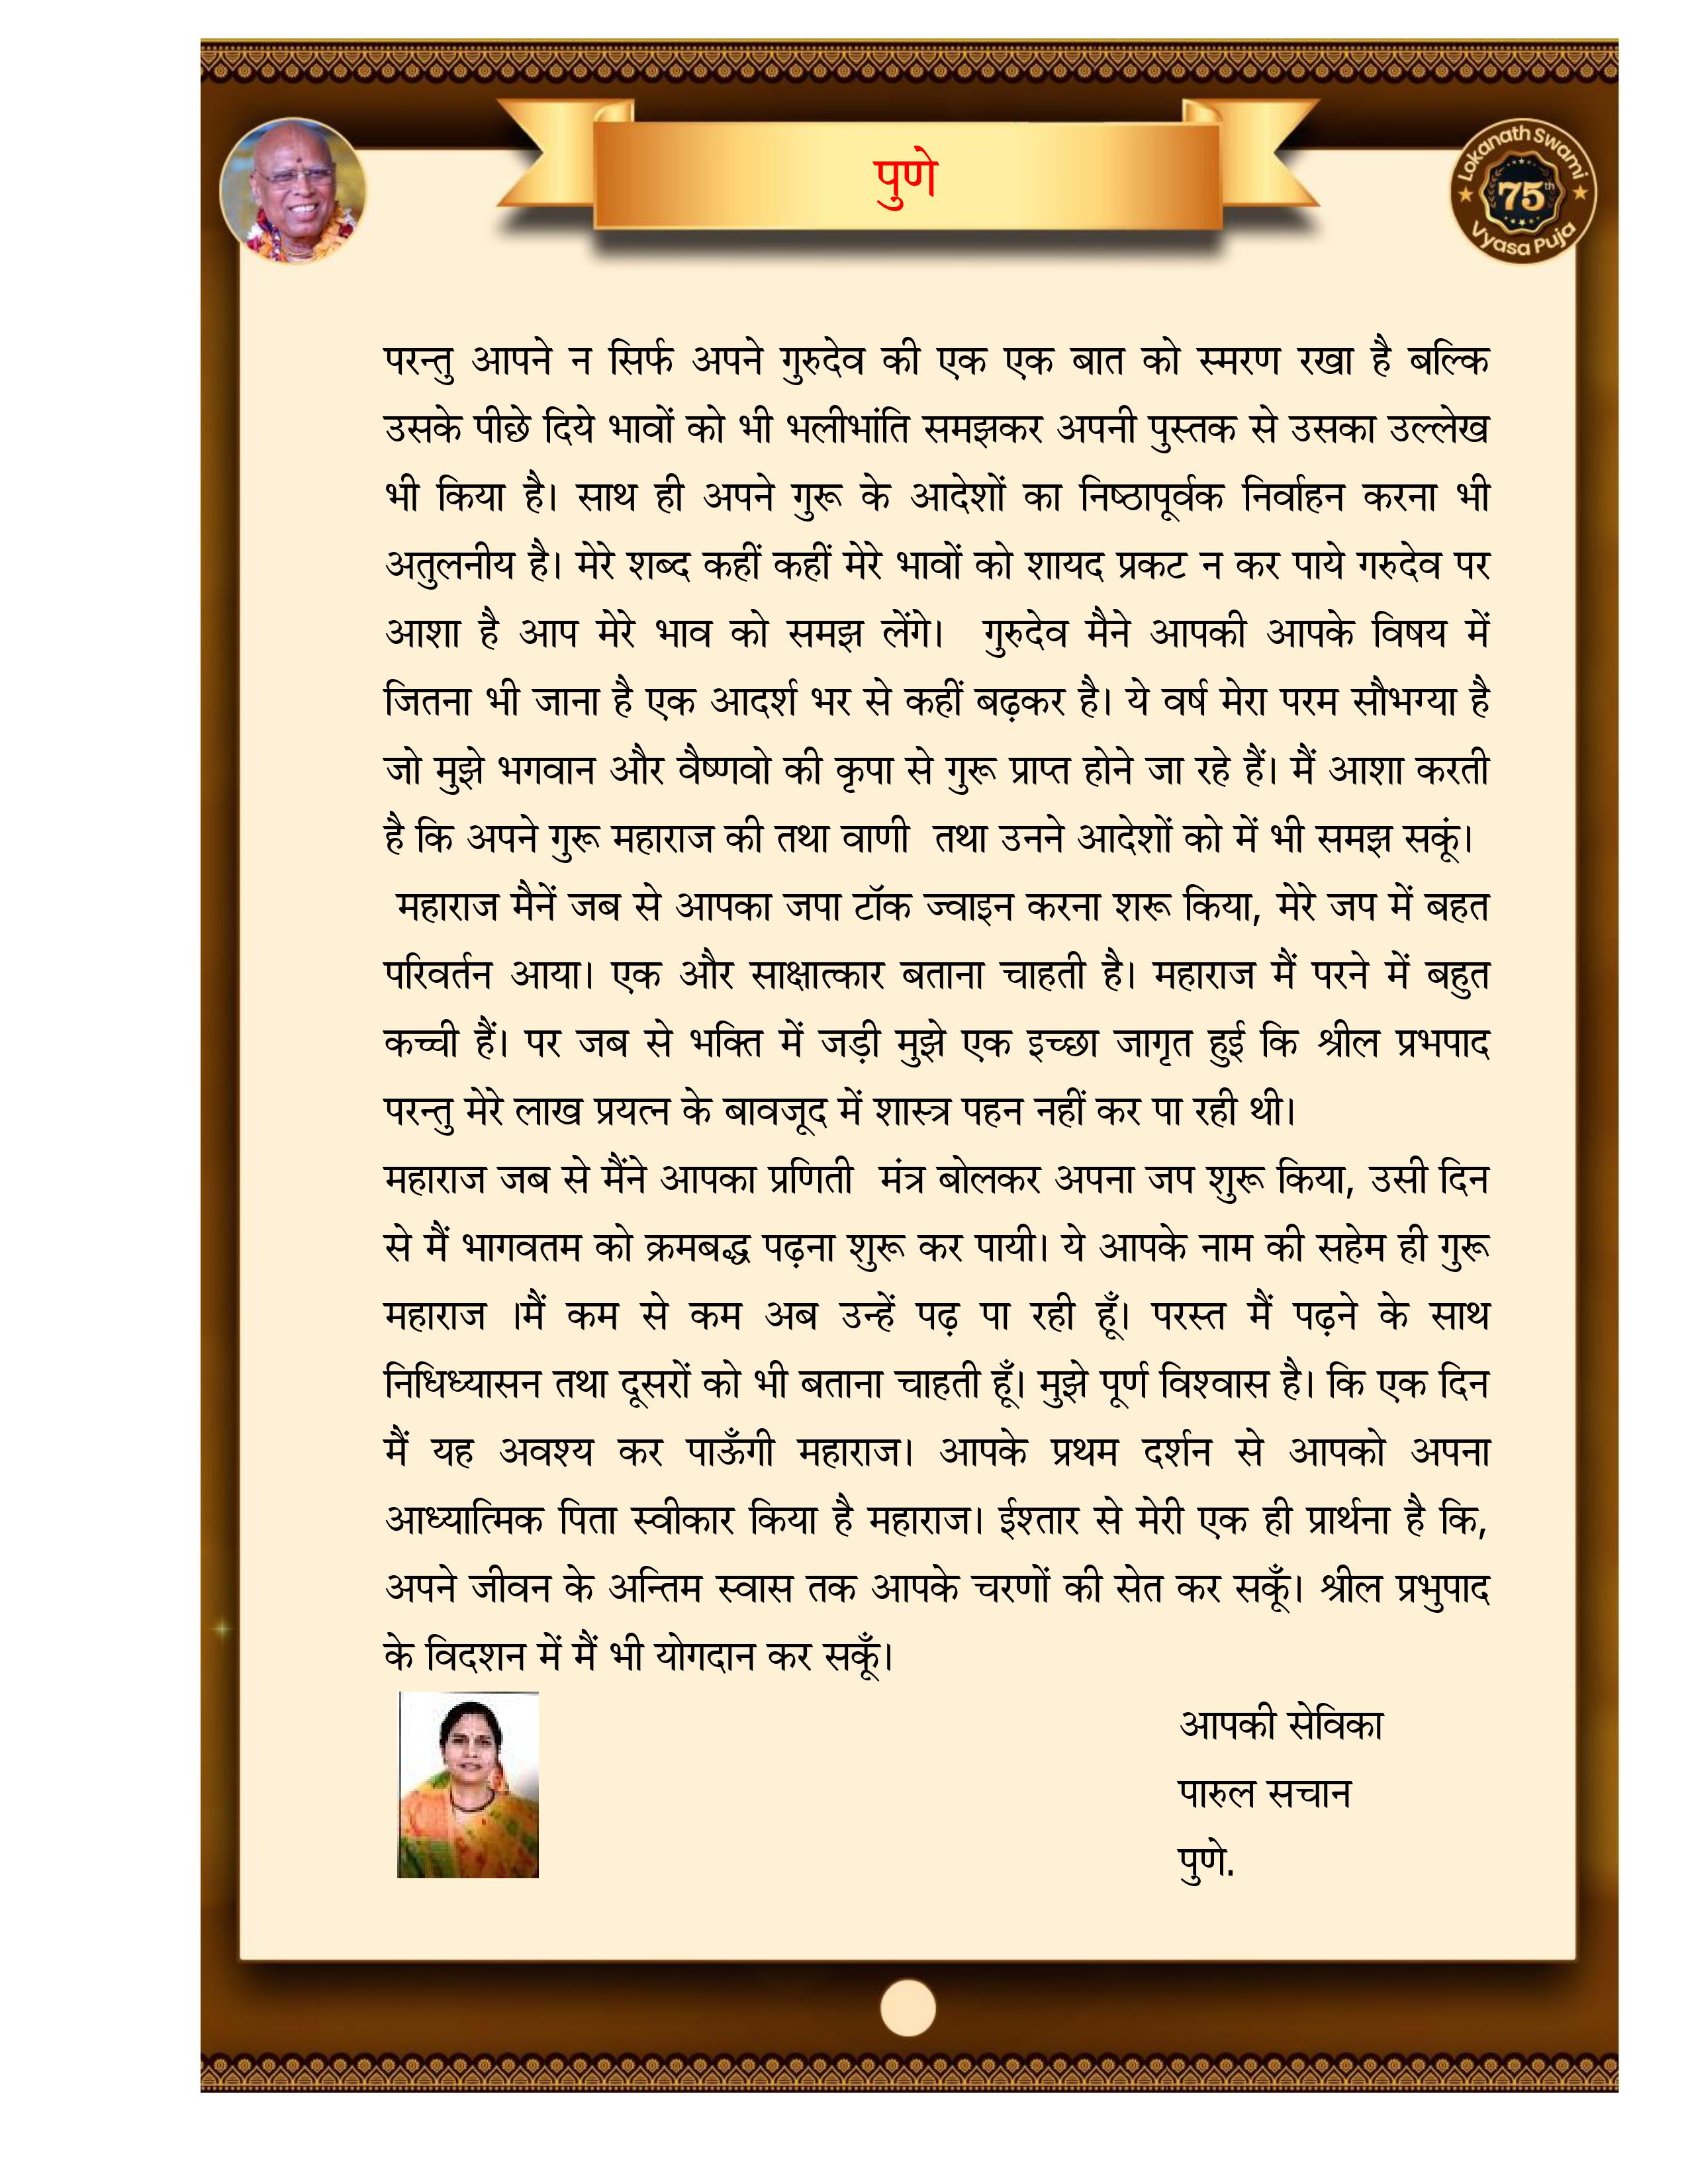 पुणे
Lokanath Swami
75th
Vyasa Puja
परन्तु आपने न सिर्फ अपने गुरुदेव की एक एक बात को स्मरण रखा है बल्कि
उसके पीछे दिये भावों को भी भलीभांति समझकर अपनी पुस्तक से उसका उल्लेख
भी किया है। साथ ही अपने गुरू के आदेशों का निष्ठापूर्वक निर्वाहन करना भी
अतुलनीय है। मेरे शब्द कहीं कहीं मेरे भावों को शायद प्रकट न कर पाये गरुदेव पर
आशा है आप मेरे भाव को समझ लेंगे। गुरुदेव मैने आपकी आपके विषय में
जितना भी जाना है एक आदर्श भर से कहीं बढ़कर है। ये वर्ष मेरा परम सौभग्या है
जो मुझे भगवान और वैष्णवो की कृपा से गुरू प्राप्त होने जा रहे हैं। मैं आशा करती
है कि अपने गुरू महाराज की तथा वाणी तथा उनने आदेशों को में भी समझ सकूं।
महाराज मैनें जब से आपका जपा टॉक ज्वाइन करना शरू किया, मेरे जप में बहत
परिवर्तन आया। एक और साक्षात्कार बताना चाहती है। महाराज मैं परने में बहुत
कच्ची हैं। पर जब से भक्ति में जड़ी मुझे एक इच्छा जागृत हुई कि श्रील प्रभपाद
परन्तु मेरे लाख प्रयत्न के बावजूद में शास्त्र पहन नहीं कर पा रही थी।
महाराज जब से मैंने आपका प्रणिती मंत्र बोलकर अपना जप शुरू किया, उसी दिन
से मैं भागवतम को क्रमबद्ध पढ़ना शुरू कर पायी। ये आपके नाम की सहेम ही गुरू
महाराज ।मैं कम से कम अब उन्हें पढ़ पा रही हूँ। परस्त मैं पढ़ने के साथ
निधिध्यासन तथा दूसरों को भी बताना चाहती हूँ। मुझे पूर्ण विश्वास है। कि एक दिन
मैं यह अवश्य कर पाऊँगी महाराज। आपके प्रथम दर्शन से आपको अपना
आध्यात्मिक पिता स्वीकार किया है महाराज। ईश्तार से मेरी एक ही प्रार्थना है कि,
अपने जीवन के अन्तिम स्वास तक आपके चरणों की सेत कर सकूँ। श्रील प्रभुपाद
के विदशन में मैं भी योगदान कर सकूँ।
आपकी सेविका
पारुल सचान
पुणे.